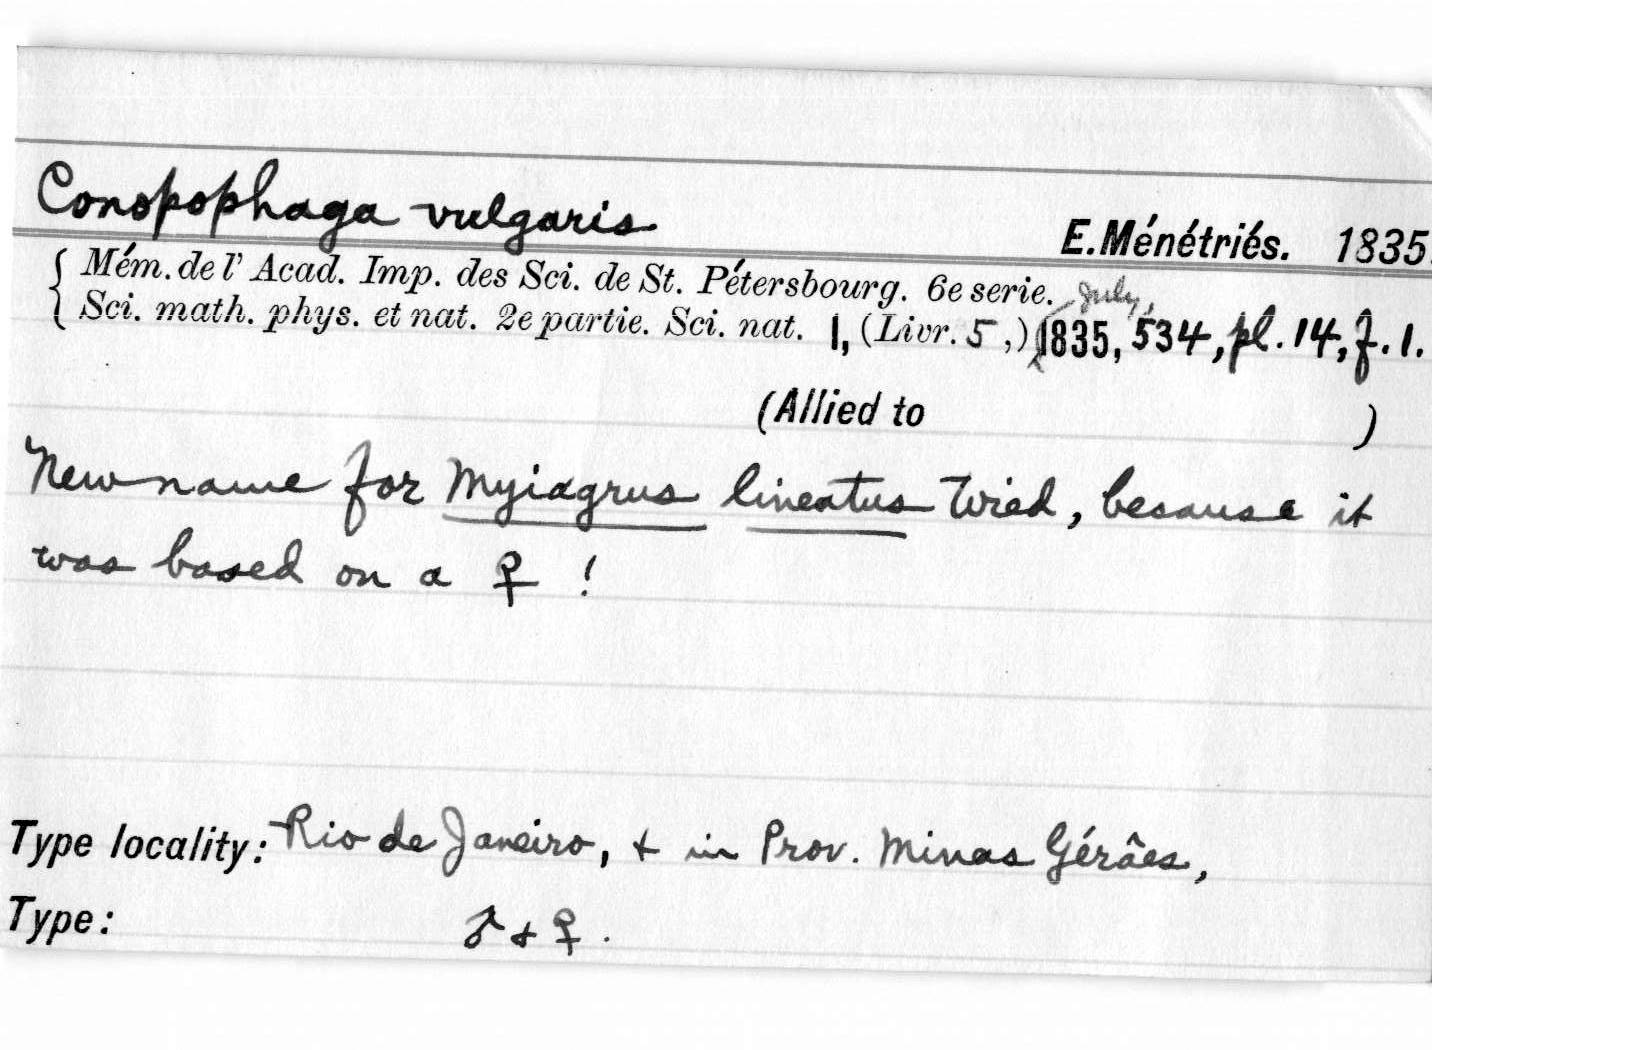 Conopophaga vulgaris
E.Ménétriés. 1835.
{ Mém. de l' Acad. Imp. des Sci. de St. Pétersbourg. 6e serie.
Sci. math. phys. et nat. 2e partie. Sci. nat. 1, (Livr. 5,) July, 1835, 534, pl. 14, f. 1.
(Allied to )
New name for Myiagrus lineatus Wied, because it
was based on a ♀ !
Type locality: Rio de Janeiro, + in Prov. Minas Gérâes,
Type: ♂ + ♀ .